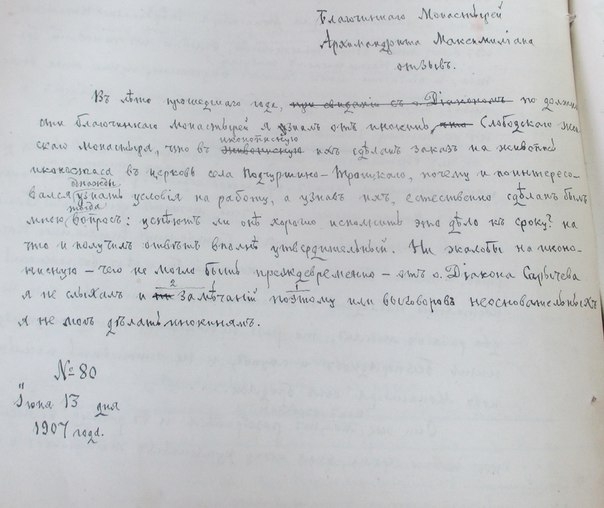 Благочиннаго Монастырей
Архимандрита Максимиліана
отзывъ.
Въ лѣто прошедшаго года, при свиданіи съ о. Діакономъ по должно
сти благочиннаго монастырей я узналъ отъ инокинь Слободскаго жен
иконописную
скаго монастыря, что въ живописную ихъ сдѣланъ заказъ на живопись
иконостаса въ церковь села Подчуршино-Троицкаго, почему и поинтересо
однажды
вался узнать условія на работу, а узнавъ ихъ, естественно сдѣланъ былъ
тогда
мною вопросъ: успѣютъ ли онѣ хорошо исполнить это дѣло къ сроку? на
что и получилъ отвѣтъ вполнѣ утвердительный. Ни жалобы на иконо
писную – чего не могло быть преждевременно – отъ о. Діакона Сарычева
2 1
я не слыхалъ и замѣчаній поэтому или выговоровъ неосновательныхъ
я не могъ дѣлать инокинямъ.
№ 80
Іюня 13 дня
1907 года.